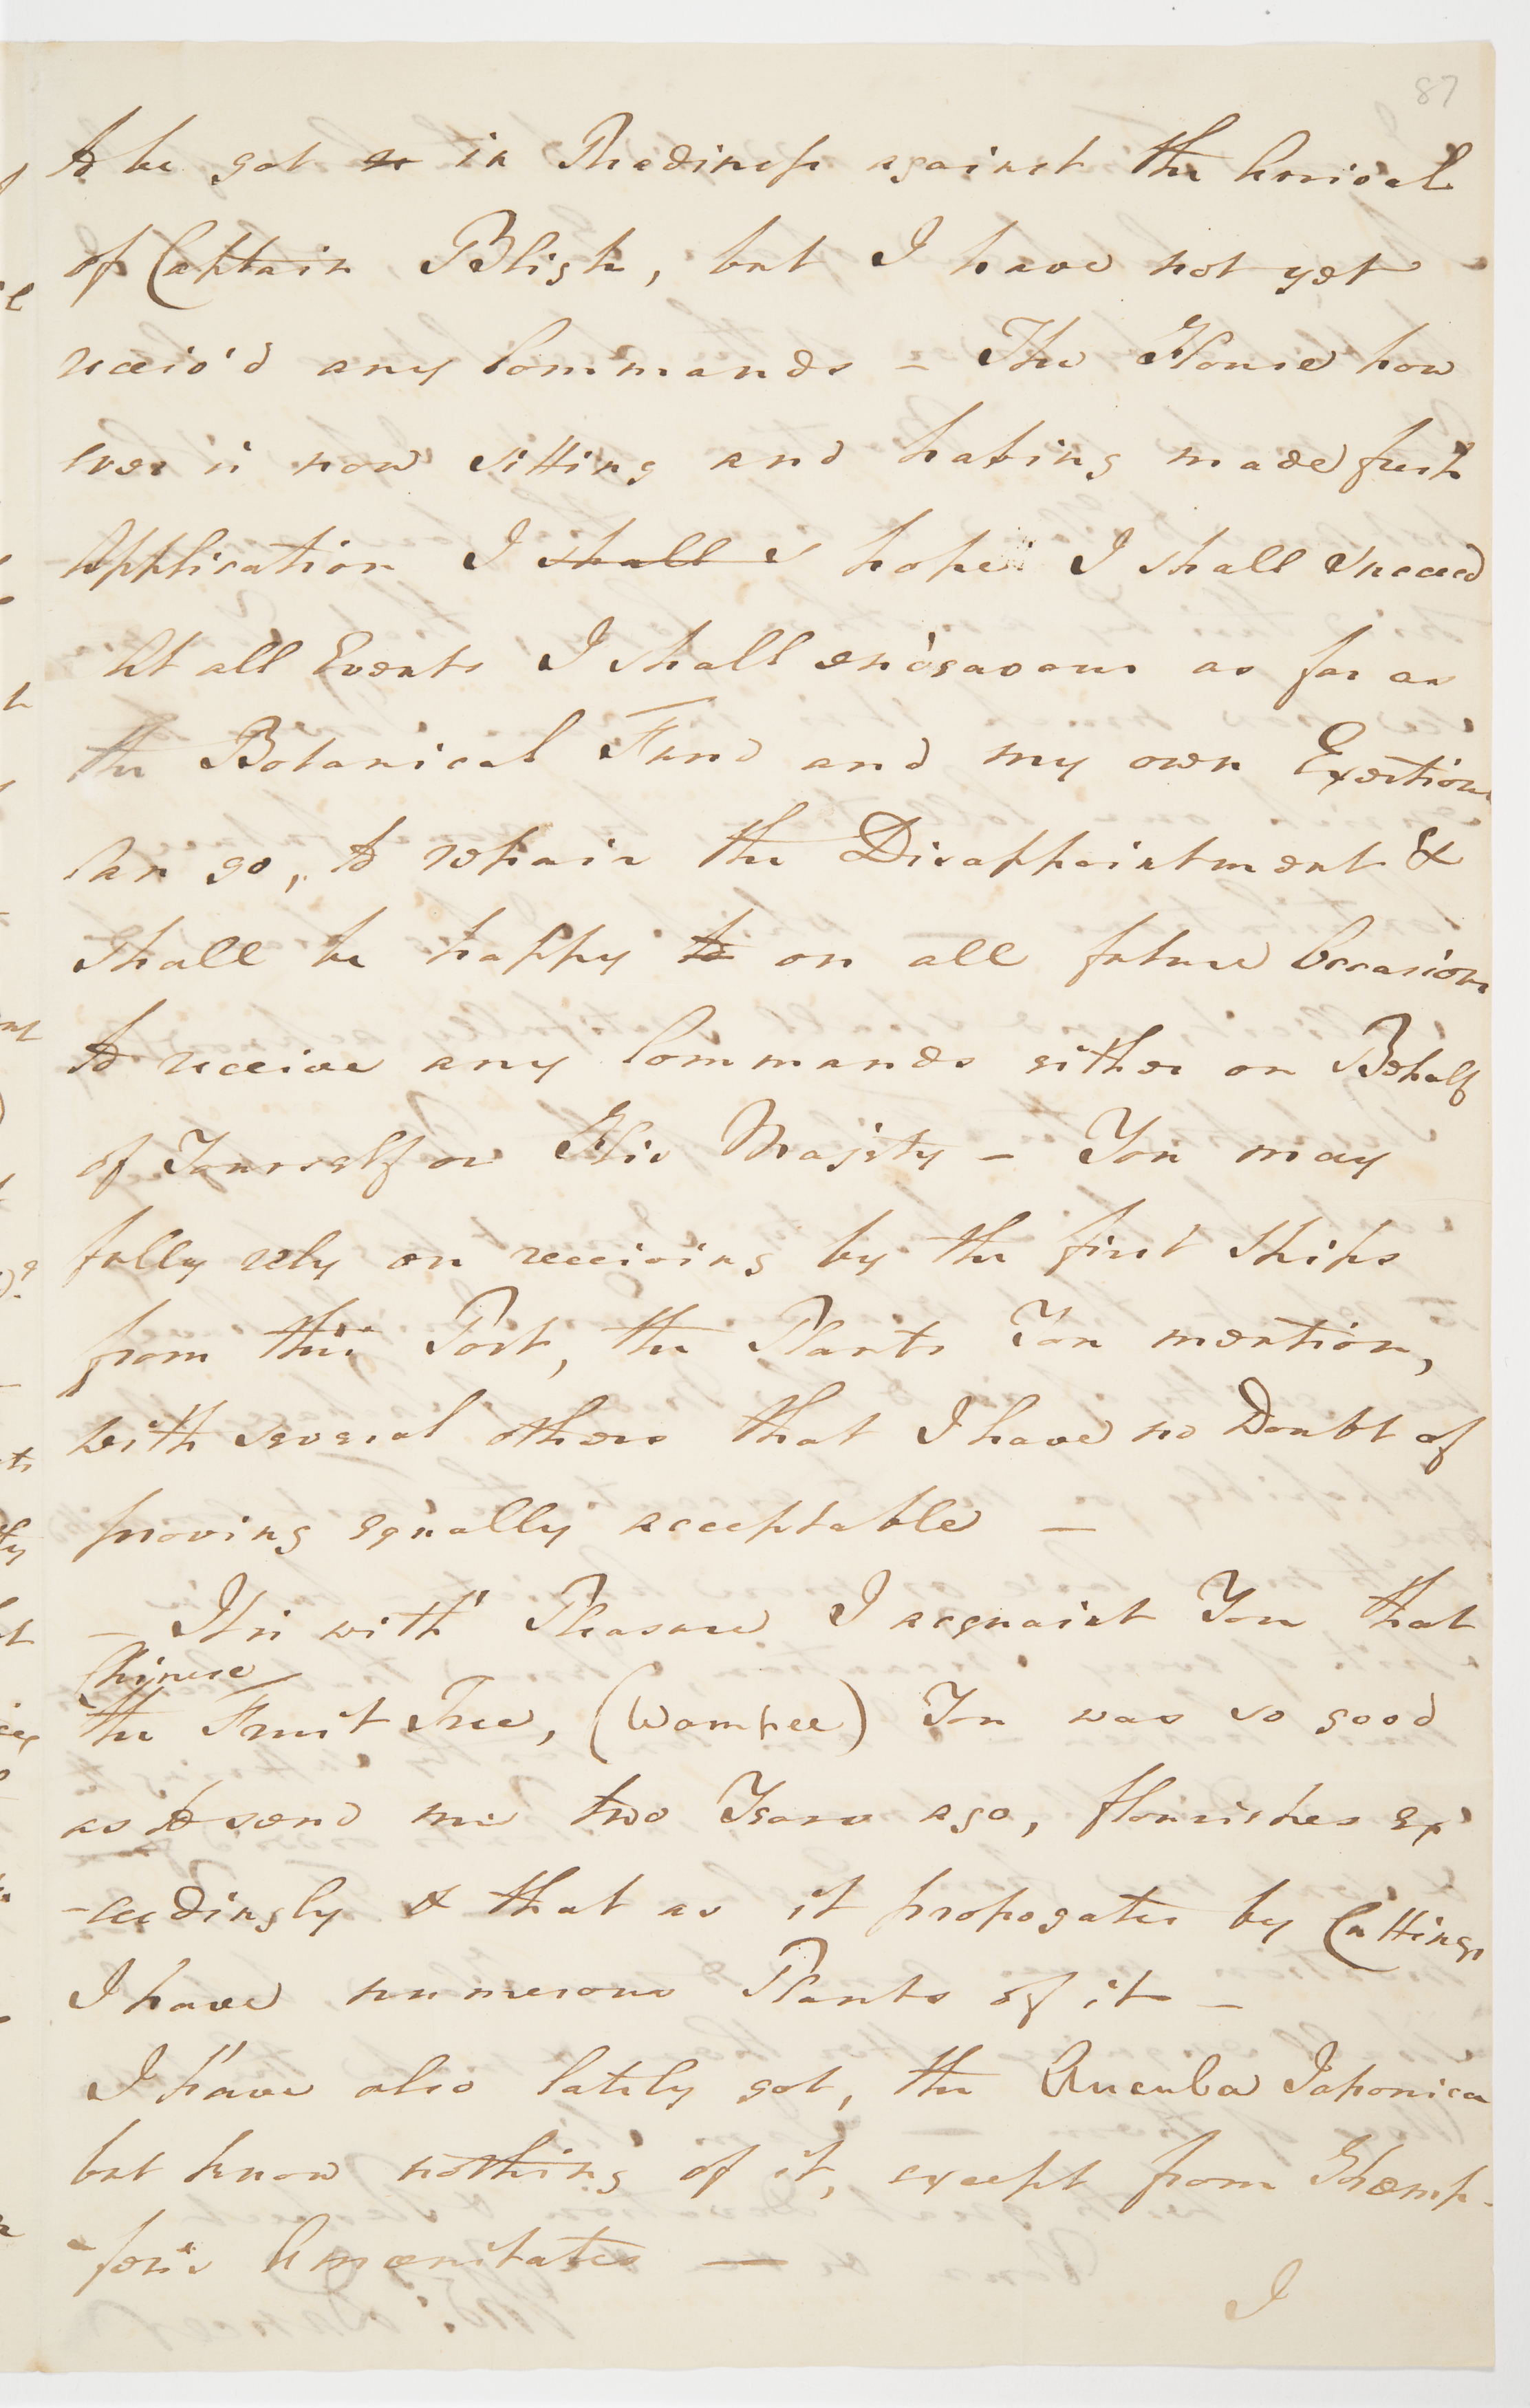 87
to be got so in Readiness against the Arrival
of Captain Bligh, but I have not yet
receiv'd any Commands - The House how
ever is now sitting and having made fresh
Application I shall s hope I shall succeed
At all Events I shall endeavour as far as
the Botanical Fund and my own Exertions
can go, to repair the Disappointment &
shall be happy to on all future Occasions
to receive any Commands either on Behalf
of Yourself or His Majesty - You may
fully rely on receiving by the first Ships
from this Port, the Plants You mention,
with several others that I have no Doubt of
proving equally acceptable -
- It is with Pleasure I acquaint You that
Chinese
the Fruit Tree, (Wampee) You was so good
as to send me two Years ago, flourishes ex
-ceedingly & that as it propogates by Cuttings
I have numerous Plants of it -
I have also lately got, the Aucuba Japonica
but know nothing of it, except from Khæmp-
-fer's Amœnitates -
I